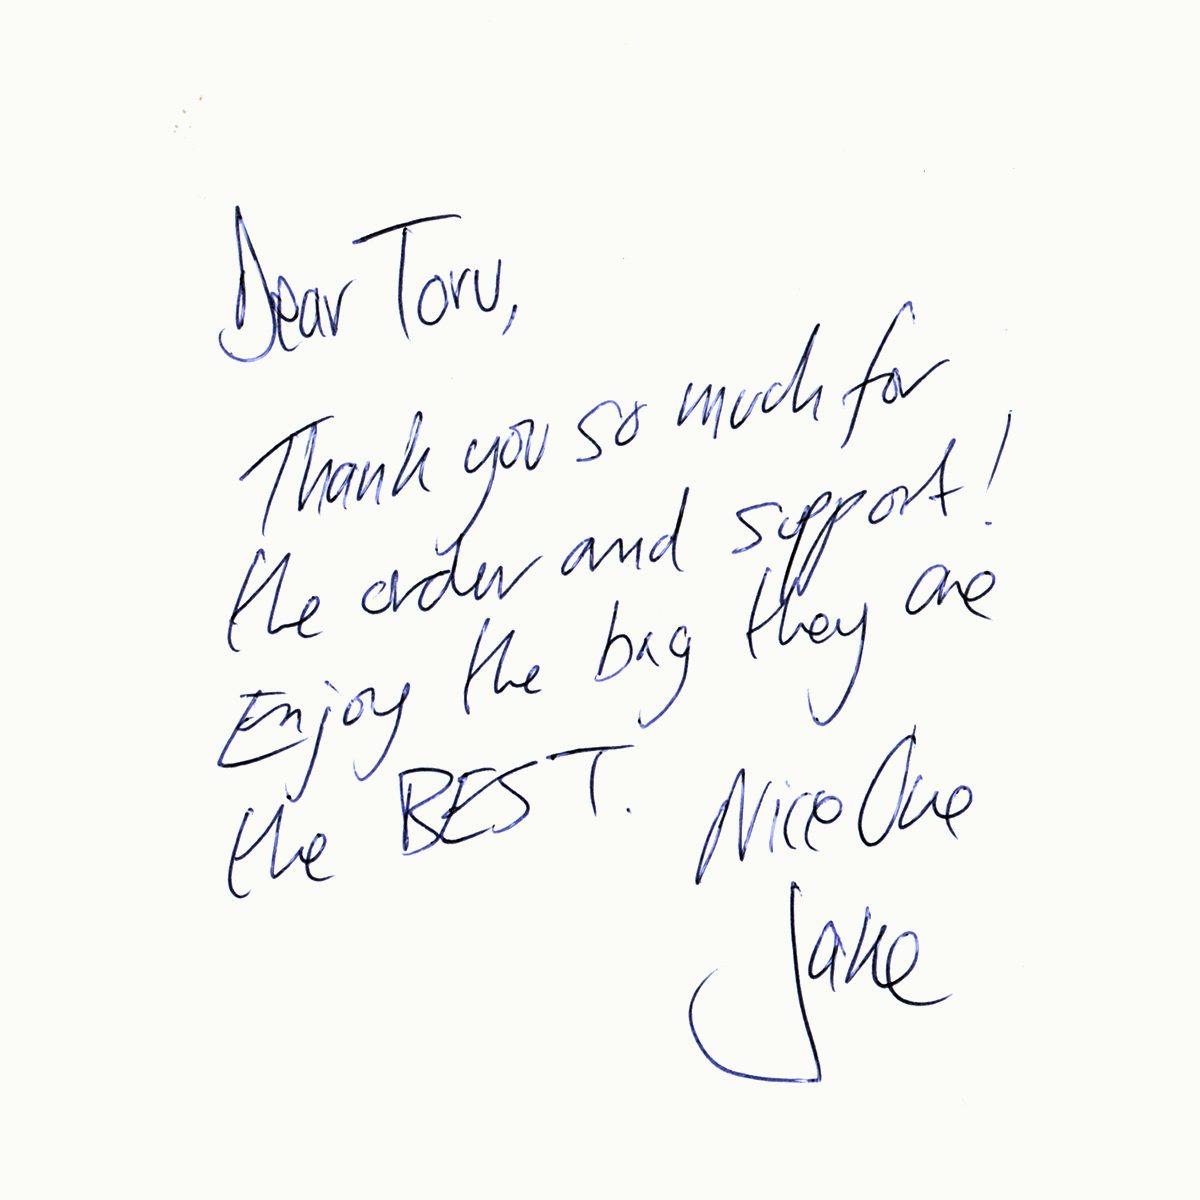 Dear Toru,
Thank you so much for
the order and support!
Enjoy the bag they are
the BEST.
Nice One
Jake